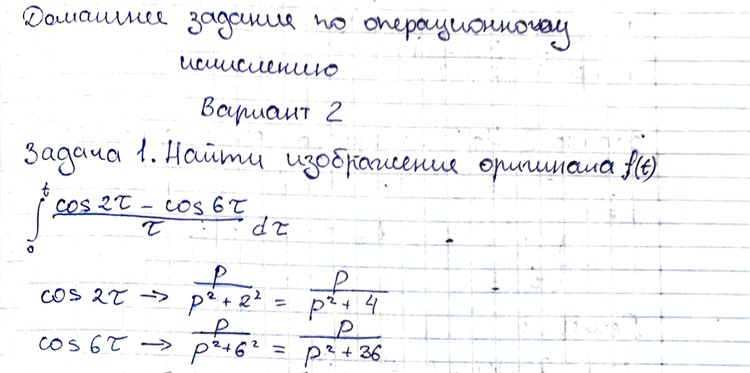 Домашнее задание по операционному
исчислению
Вариант 2
Задача 1. Найти изображение оригинала f(t)
∫₀ᵗ (cos 2τ − cos 6τ)/τ dτ
cos 2τ → p/(p² + 2²) = p/(p² + 4)
cos 6τ → p/(p² + 6²) = p/(p² + 36)